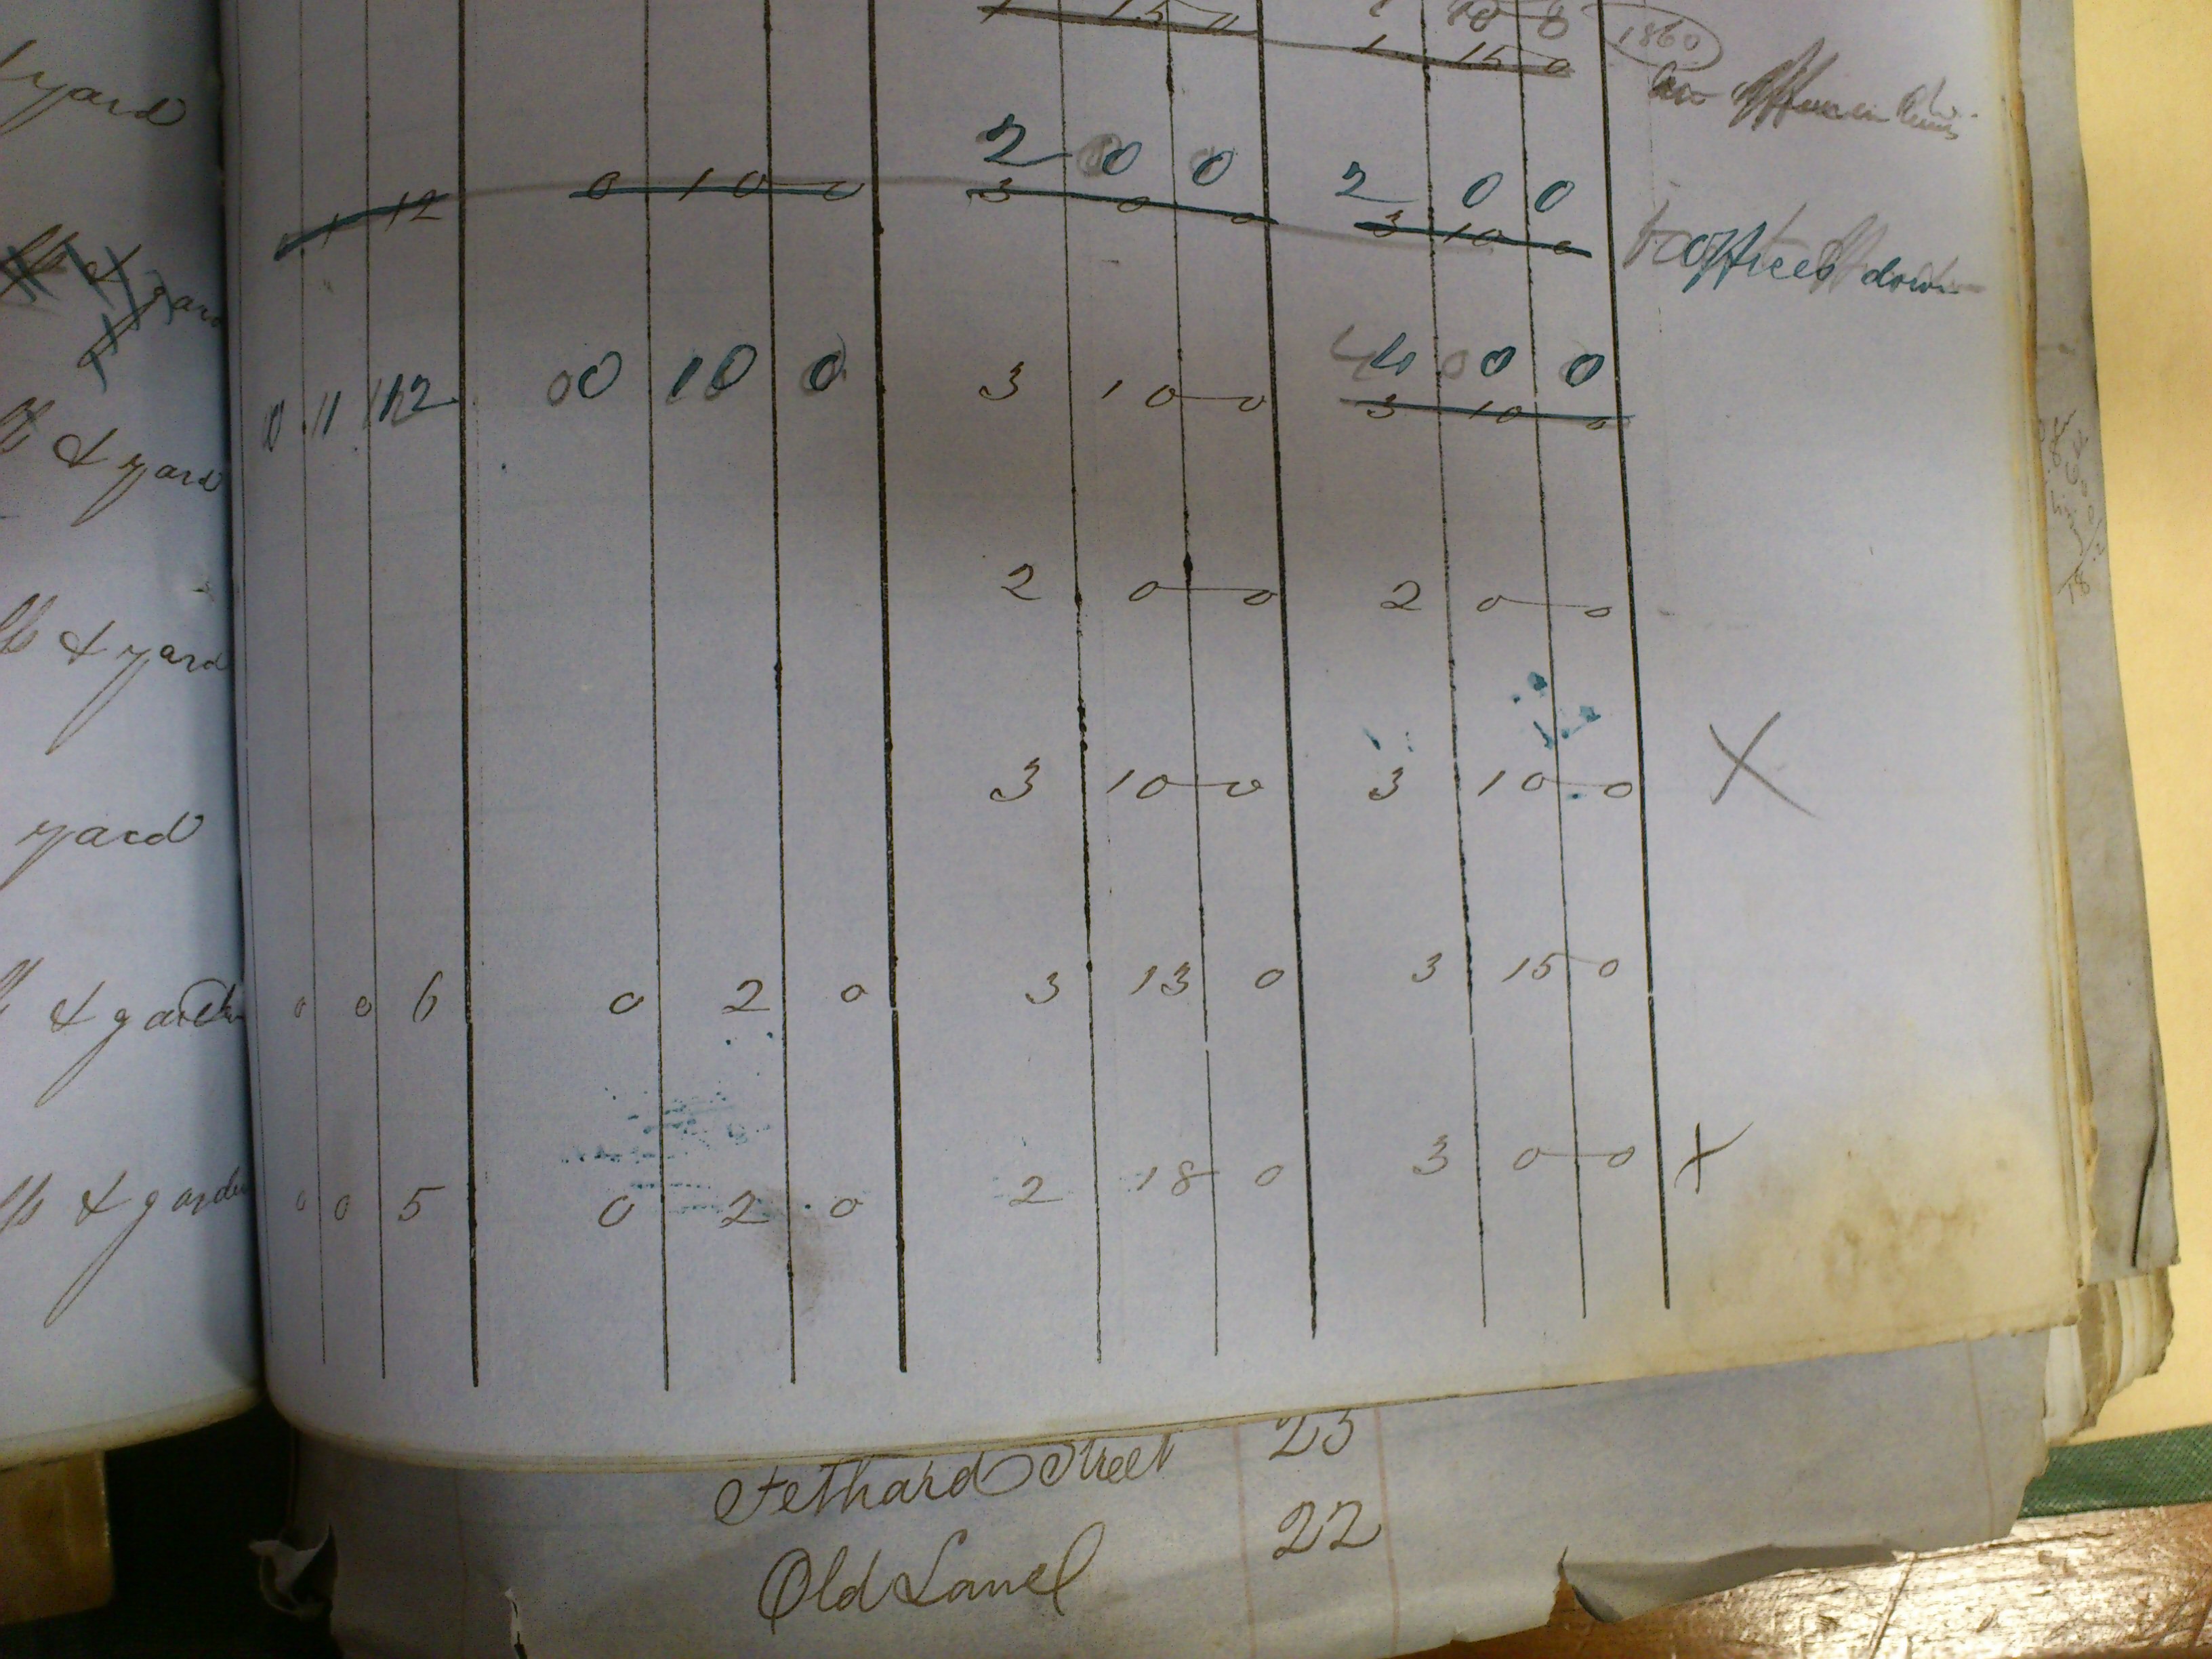 1 15 0 1 10 8 1860
1 15 0
yard
2 0 0 2 0 0
0 1 12 0 10 0 3 0 0 3 10 0 offices down
& gard
4 0 0
0 1 12 0 10 0 3 10 0 3 10 0
& yard
2 0 0 2 0 0
& yard
3 10 0 3 10 0 X
yard
& garden 0 0 6 0 2 0 3 13 0 3 15 0
& garden 0 0 5 0 2 0 2 18 0 3 0 0 X
Fethard Street 23
Old Lane 22